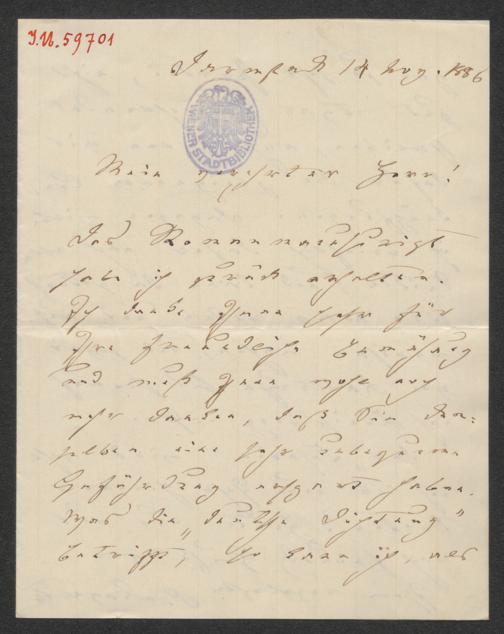 I.N. 59701
Darmstadt 14 Aug. 1886
WIENER STADTBIBLIOTHEK
Mein verehrter Herr!
Das Romanmanuskript
habe ich zurück erhalten.
Ich danke Ihnen sehr für
Ihre freundliche Bemühung
und muß Ihnen wohl auch
mehr danken, daß Sie den-
selben eine sehr unbequeme
haben.
Was die „Deutsche Dichtung“
betrifft, so kann ich, was